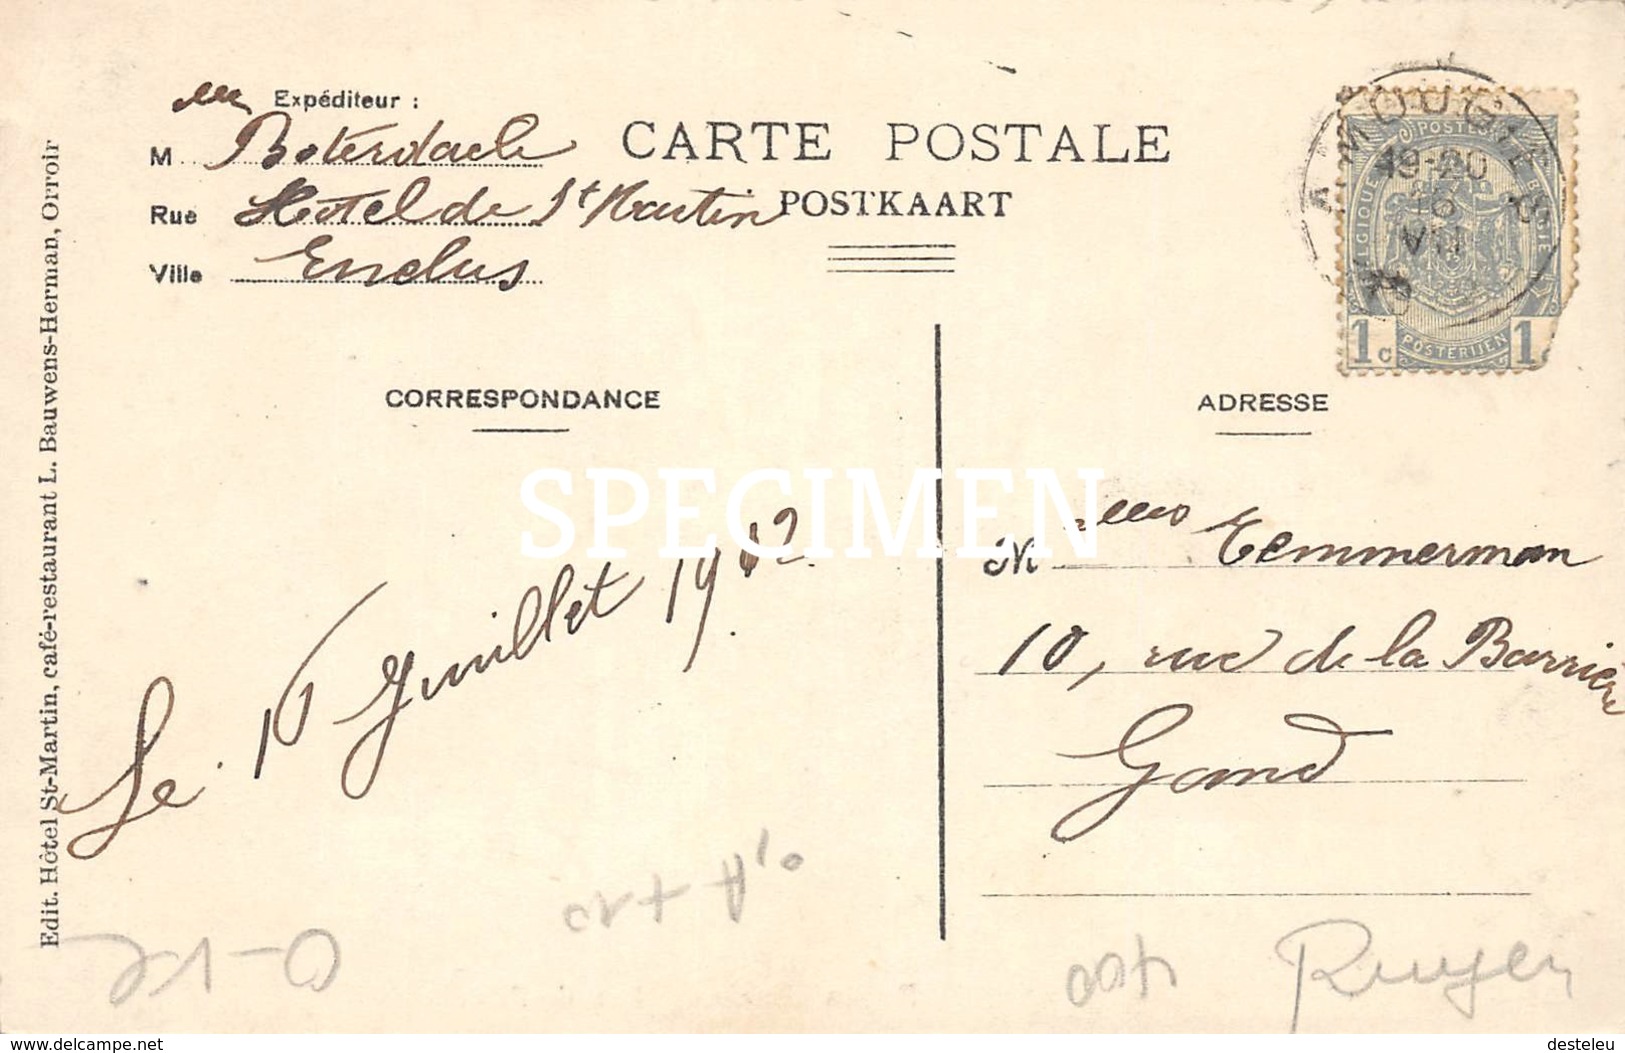 Expéditeur :
M Boterdaele
Rue Hotel de St Martin
Ville Enclus
CARTE POSTALE
POSTKAART
AMOUGIES
19-20
16
VII
POSTES
BELGIQUE
BELGIË
1c
POSTERIJEN
1c
CORRESPONDANCE
ADRESSE
SPECIMEN
Le 16 Juillet 1912
M elles Temmerman
10, rue de la Barrière
Gand
Edit. Hôtel St-Martin, café-restaurant L. Bauwens-Herman, Orroir
Ruyen
www.delcampe.net
desteleu